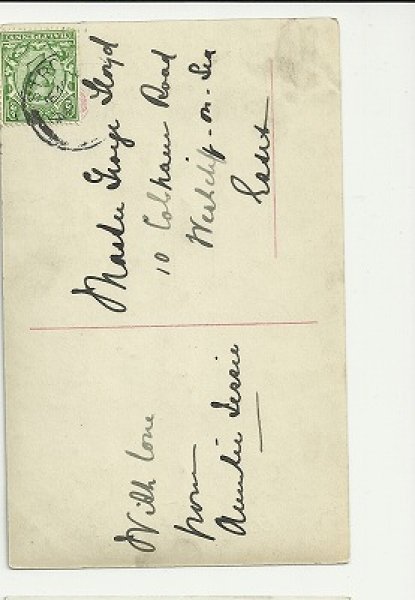 With love
from
Auntie Jessie
Master George Lloyd
10 Cobham Road
Westcliff-on-Sea
Essex